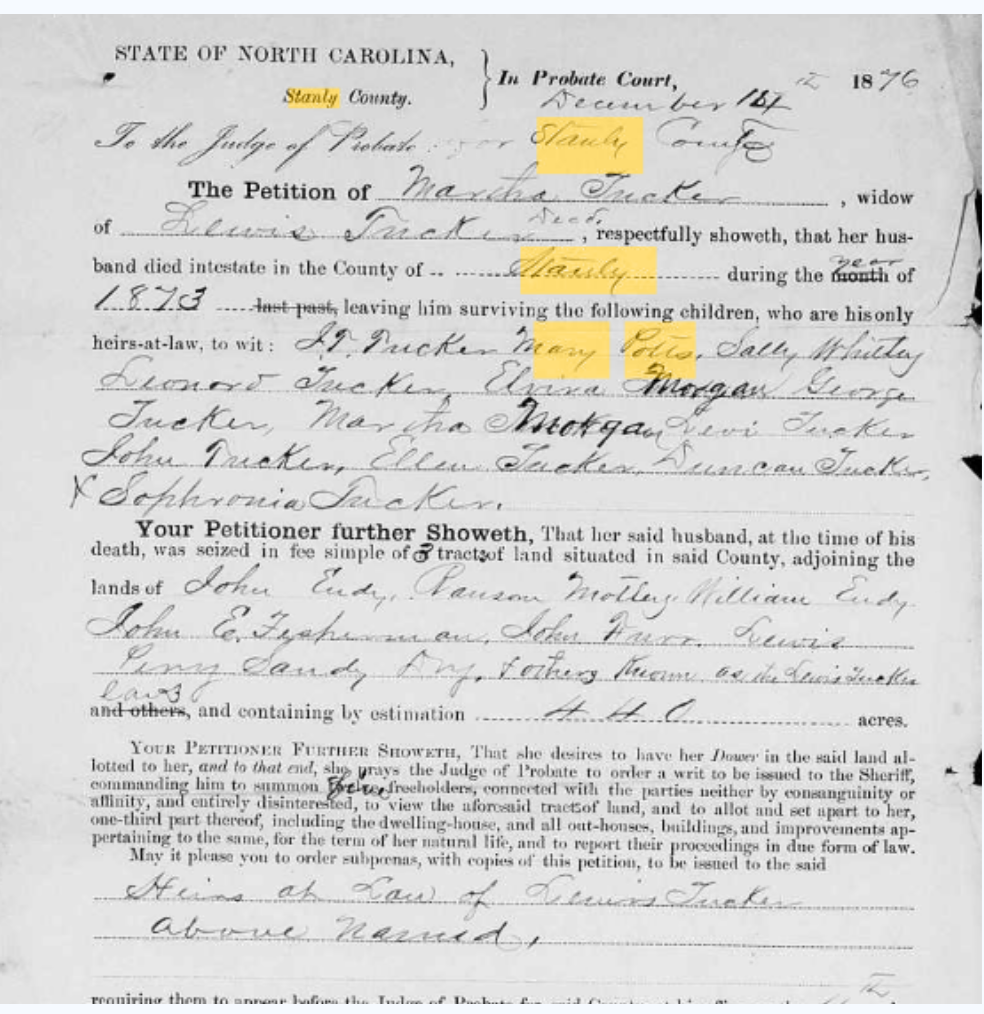 STATE OF NORTH CAROLINA,
Stanly County.
In Probate Court,
1876
December
To the Judge of Probate for Stanly County
The Petition of Martha Tucker, widow
of Lewis Tucker Decd., respectfully showeth, that her hus-
band died intestate in the County of Stanly during the month year of
1873 last past, leaving him surviving the following children, who are his only
heirs-at-law, to wit: J.T. Tucker Mary Potts, Sally Whitley
Leonord Tucker, Elvira Morgan George
Tucker, Martha Morgan Levi Tucker
John Tucker, Ellen Tucker, Duncan Tucker,
X Sophronia Tucker.
Your Petitioner further Showeth, That her said husband, at the time of his
death, was seized in fee simple of 3 tracts of land situated in said County, adjoining the
lands of John Eudy, Ranson William Eudy
John E. John Lewis
Sandy Dry, & others Known as the Lewis Tucker
and others, and containing by estimation 440 acres.
YOUR PETITIONER FURTHER SHOWETH, That she desires to have her Dower in the said land al-
lotted to her, and to that end, she prays the Judge of Probate to order a writ to be issued to the Sheriff,
commanding him to summon freeholders, connected with the parties neither by consanguinity or
affinity, and entirely disinterested, to view the aforesaid tracts of land, and to allot and set apart to her,
one-third part thereof, including the dwelling-house, and all out-houses, buildings, and improvements ap-
pertaining to the same, for the term of her natural life, and to report their proceedings in due form of law.
May it please you to order subpœnas, with copies of this petition, to be issued to the said
Heirs at Law of Lewis Tucker
above Named,
requiring them to appear before the Judge of Probate for said County